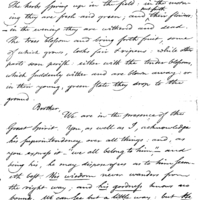 The herbs spring up in the field in the morn-
ing they are fresh and green, and their flowers
in the evening they are withered and
The tree blossoms and brings forth fruit, some
of which grows, looks fair & ripens: while other
parts now perish either with the tender blossom,
which suddenly wither and are blown away, or
in their young, green state they drop to the
ground.
Brother,
We are in the presence of the
Great Spirit. You, as well as I, acknowledge
his superintendency over all things; and, as
you express it, "we all belong to him" and
being his, he may dispose of us as to him seem-
eth best. His wisdom never wanders from
the right way, and his goodness knows no
bound. We can see but a little way; but the